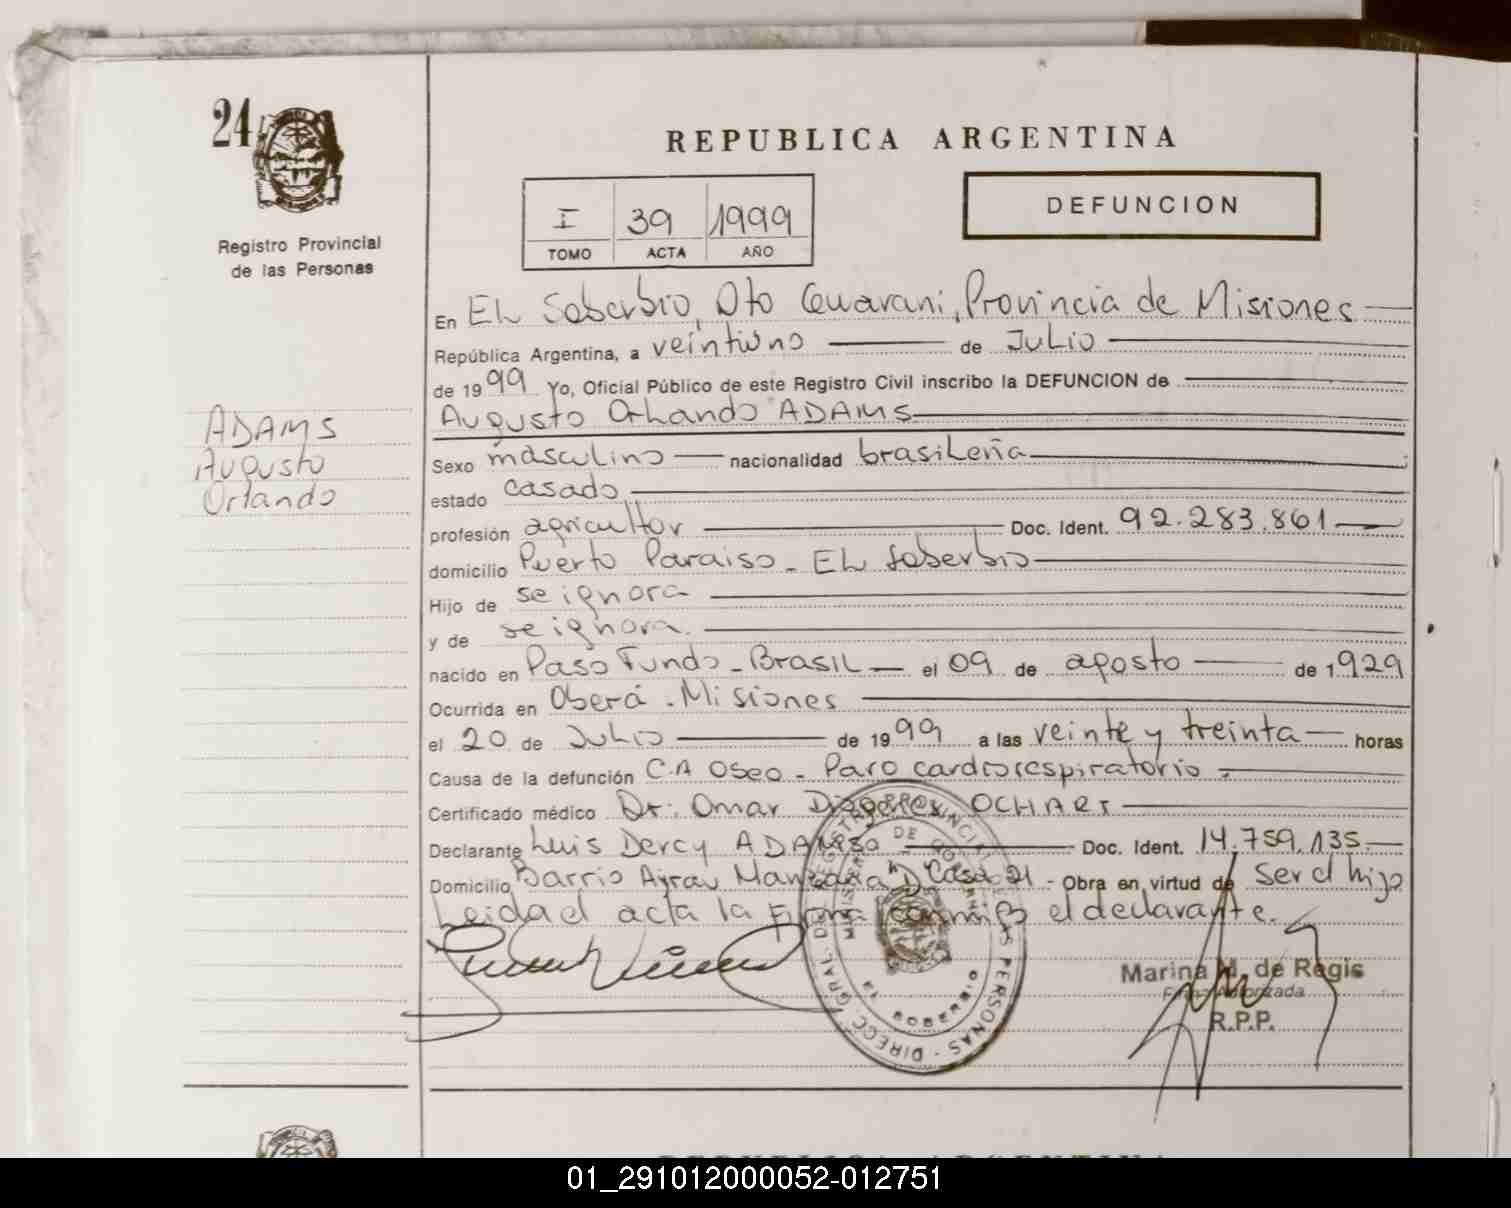 24
Registro Provincial
de las Personas
REPUBLICA ARGENTINA
I 39 1999
TOMO ACTA AÑO
DEFUNCION
En EL Soberbio, Dto Guarani, Provincia de Misiones
República Argentina, a veintiuno de Julio
de 1999 Yo, Oficial Público de este Registro Civil inscribo la DEFUNCION de
Augusto Orlando ADAMS
ADAMS
Augusto
Orlando
Sexo masculino nacionalidad brasileña
estado casado
profesión agricultor Doc. Ident. 92.283.861
domicilio Puerto Paraiso - EL Soberbio
Hijo de se ignora
y de se ignora.
nacido en Paso Fundo - Brasil el 09 de agosto de 1929
Ocurrida en Oberá - Misiones
el 20 de Julio de 1999 a las veinte y treinta horas
Causa de la defunción C.A Oseo - Paro cardiorespiratorio
Certificado médico Dr: Omar Diogenes
Declarante Luis Dercy ADAMS Doc. Ident. 14.759.135
Domicilio Barrio Manzana D Casa 21 - Obra en virtud de ser el hijo
Leida el acta la Firma conmigo el declarante.
Marina M. de Regis
Firma Autorizada
R.P.P.
REGISTRO PROVINCIAL DE LAS PERSONAS - DIRECC. GRAL. DE
MINISTERIO DE GOBIERNO
SOBERBIO
REPUBLICA ARGENTINA
01_291012000052-012751